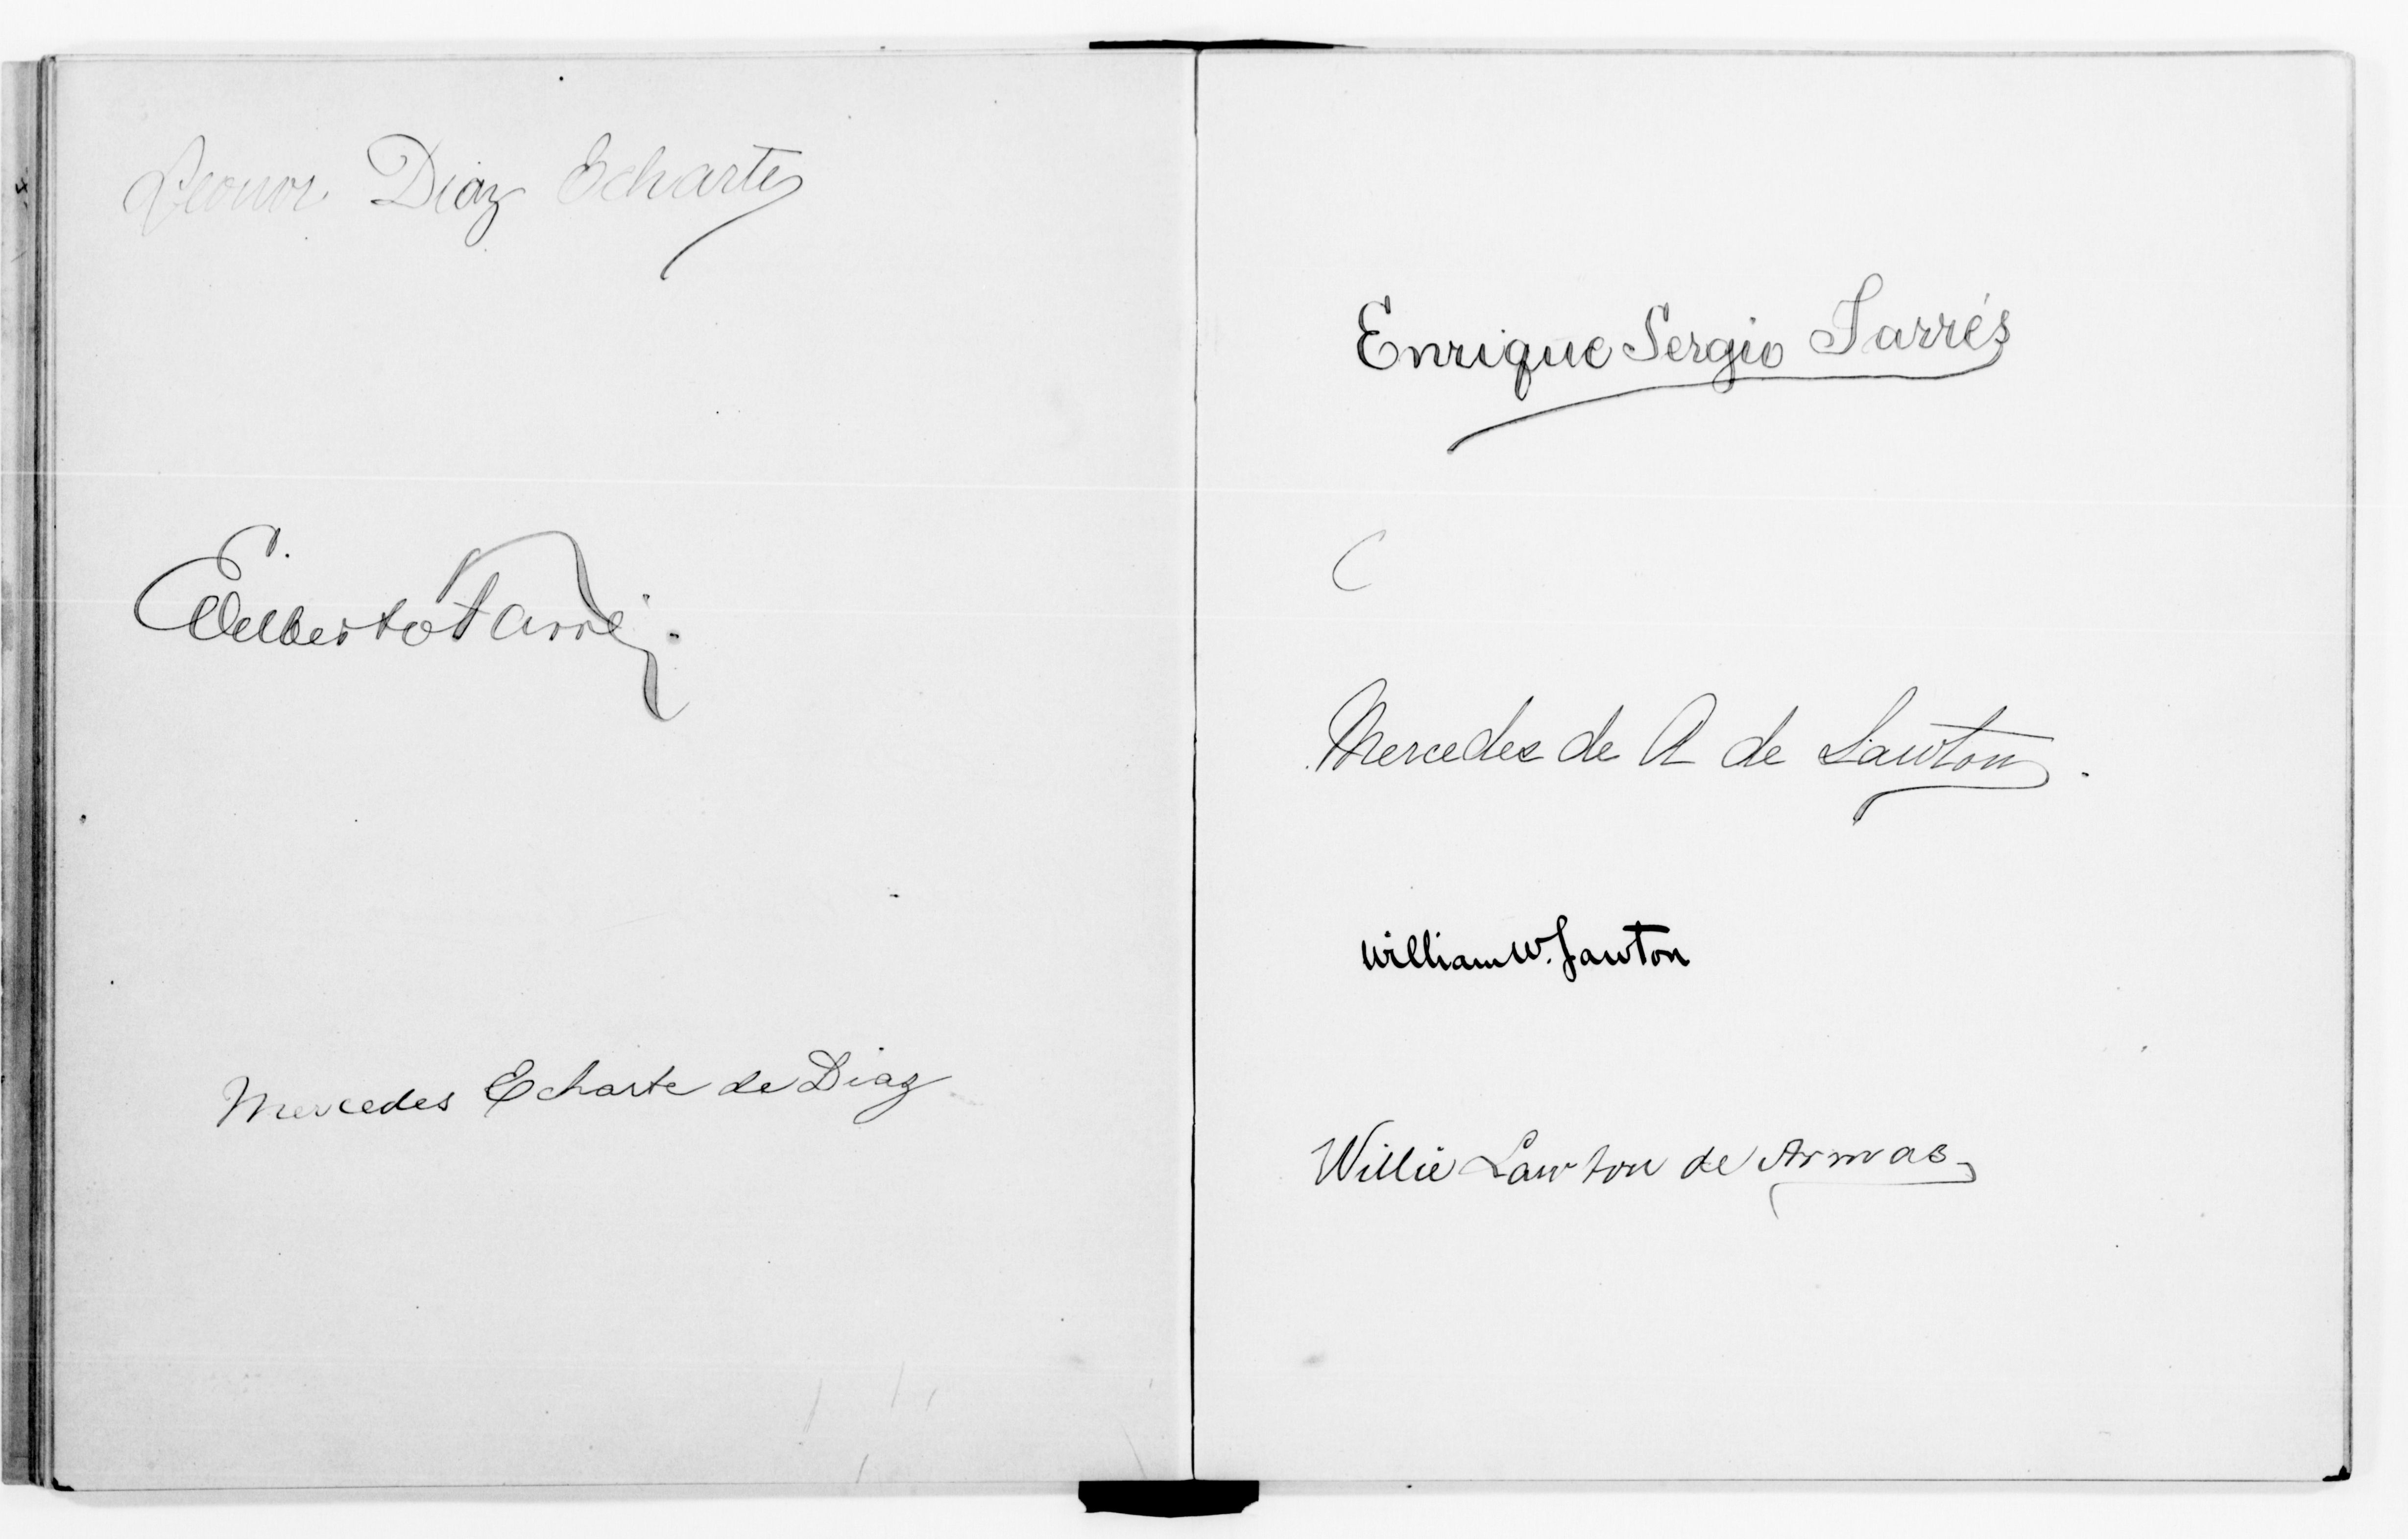 Leonor Diaz Echarte
Edelberto Farré.
Mercedes Echarte de Diaz
Enrique Sergio Farrés
C
Mercedes de A de Lawton.
William W. Lawton
Willie Lawton de Armas